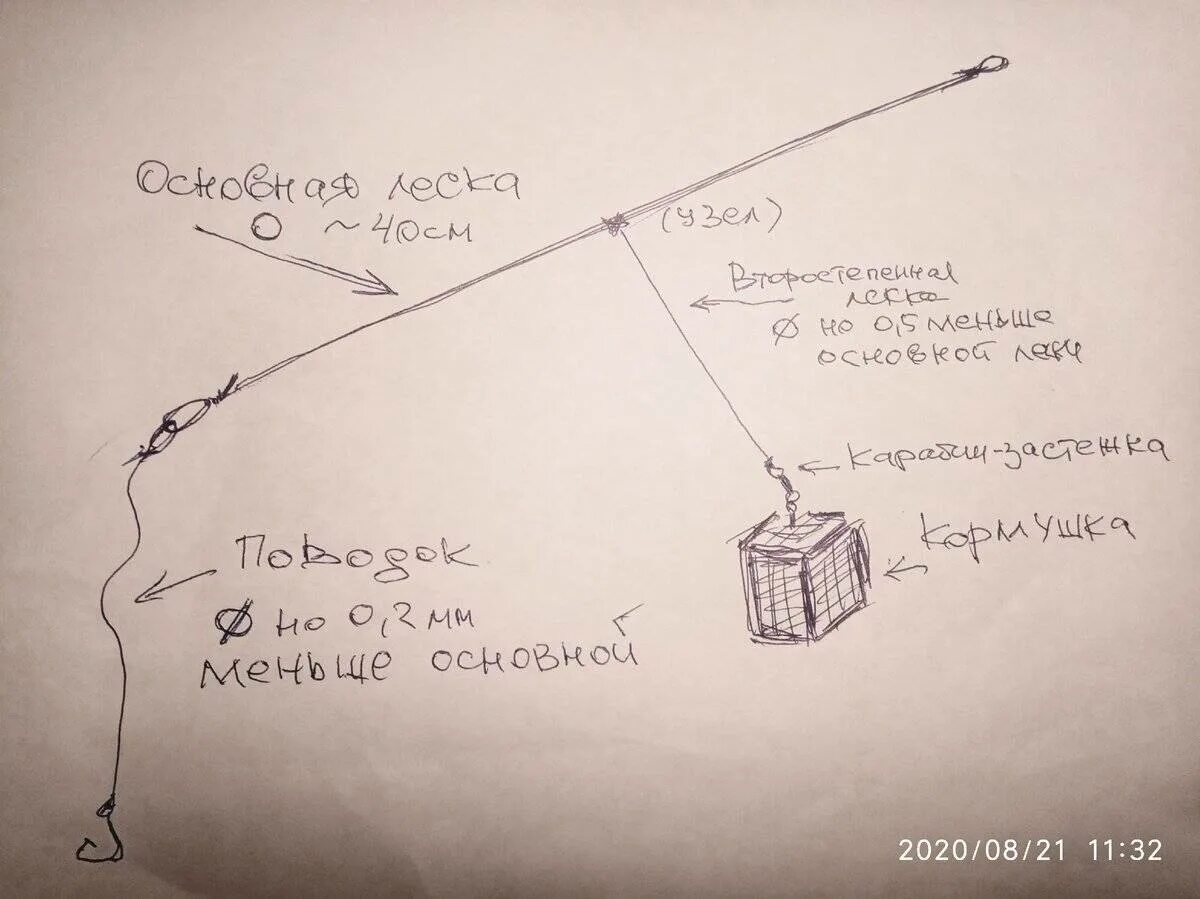 Основная леска
О ~40см
(узел)
Второстепенная
леска
Ø но 0,5 меньше
основной
Карабин-застежка
Кормушка
Поводок
Ø но 0,2мм
меньше основной
2020/08/21 11:32